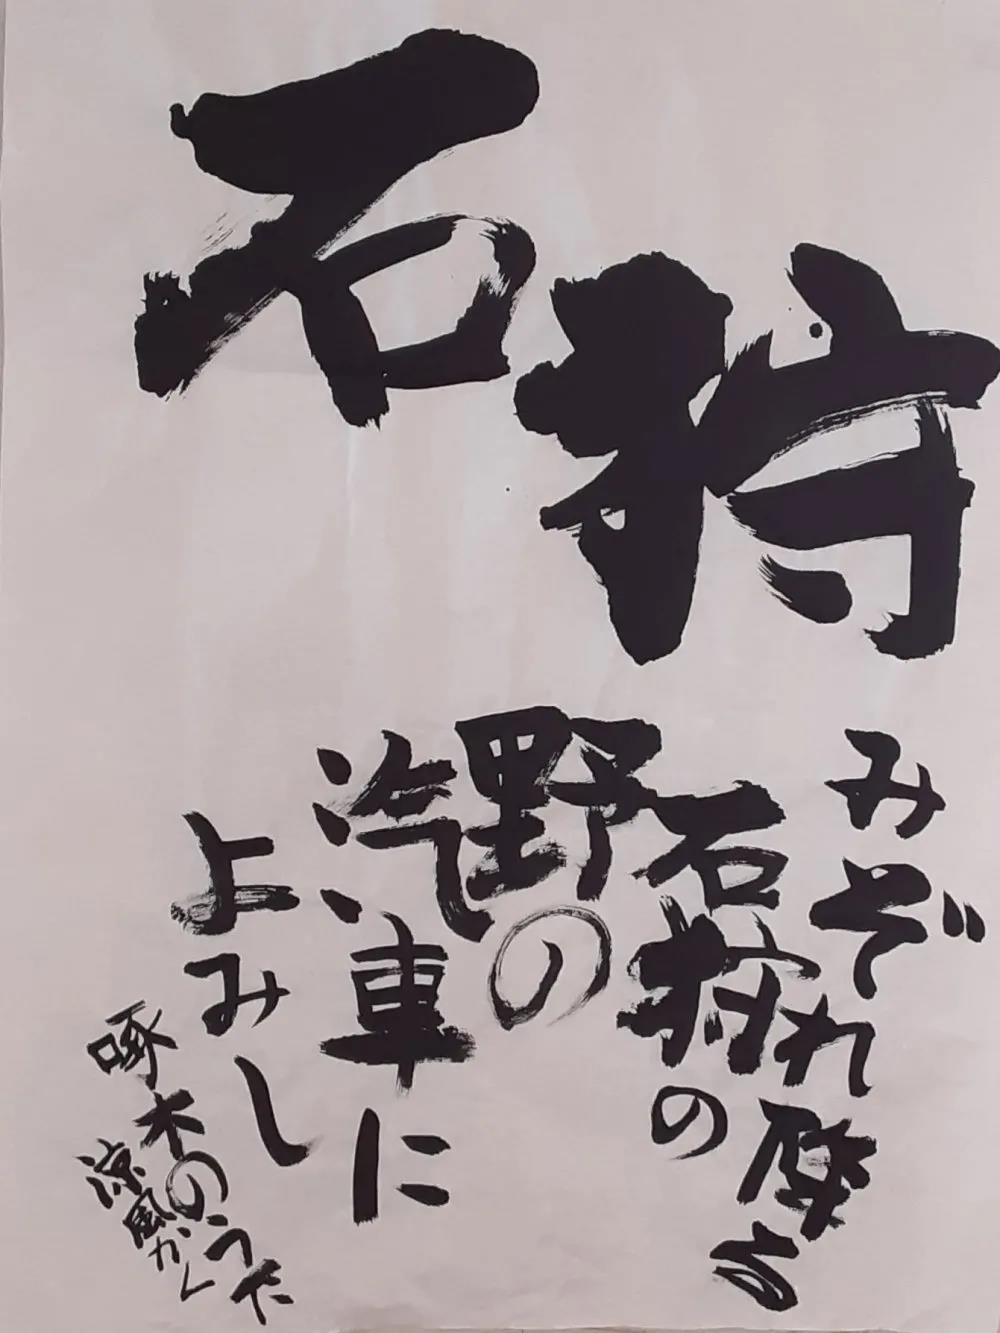 石狩
みぞれ降る
石狩の
野の
汽車に
よみし
啄木のうた
涼風かく